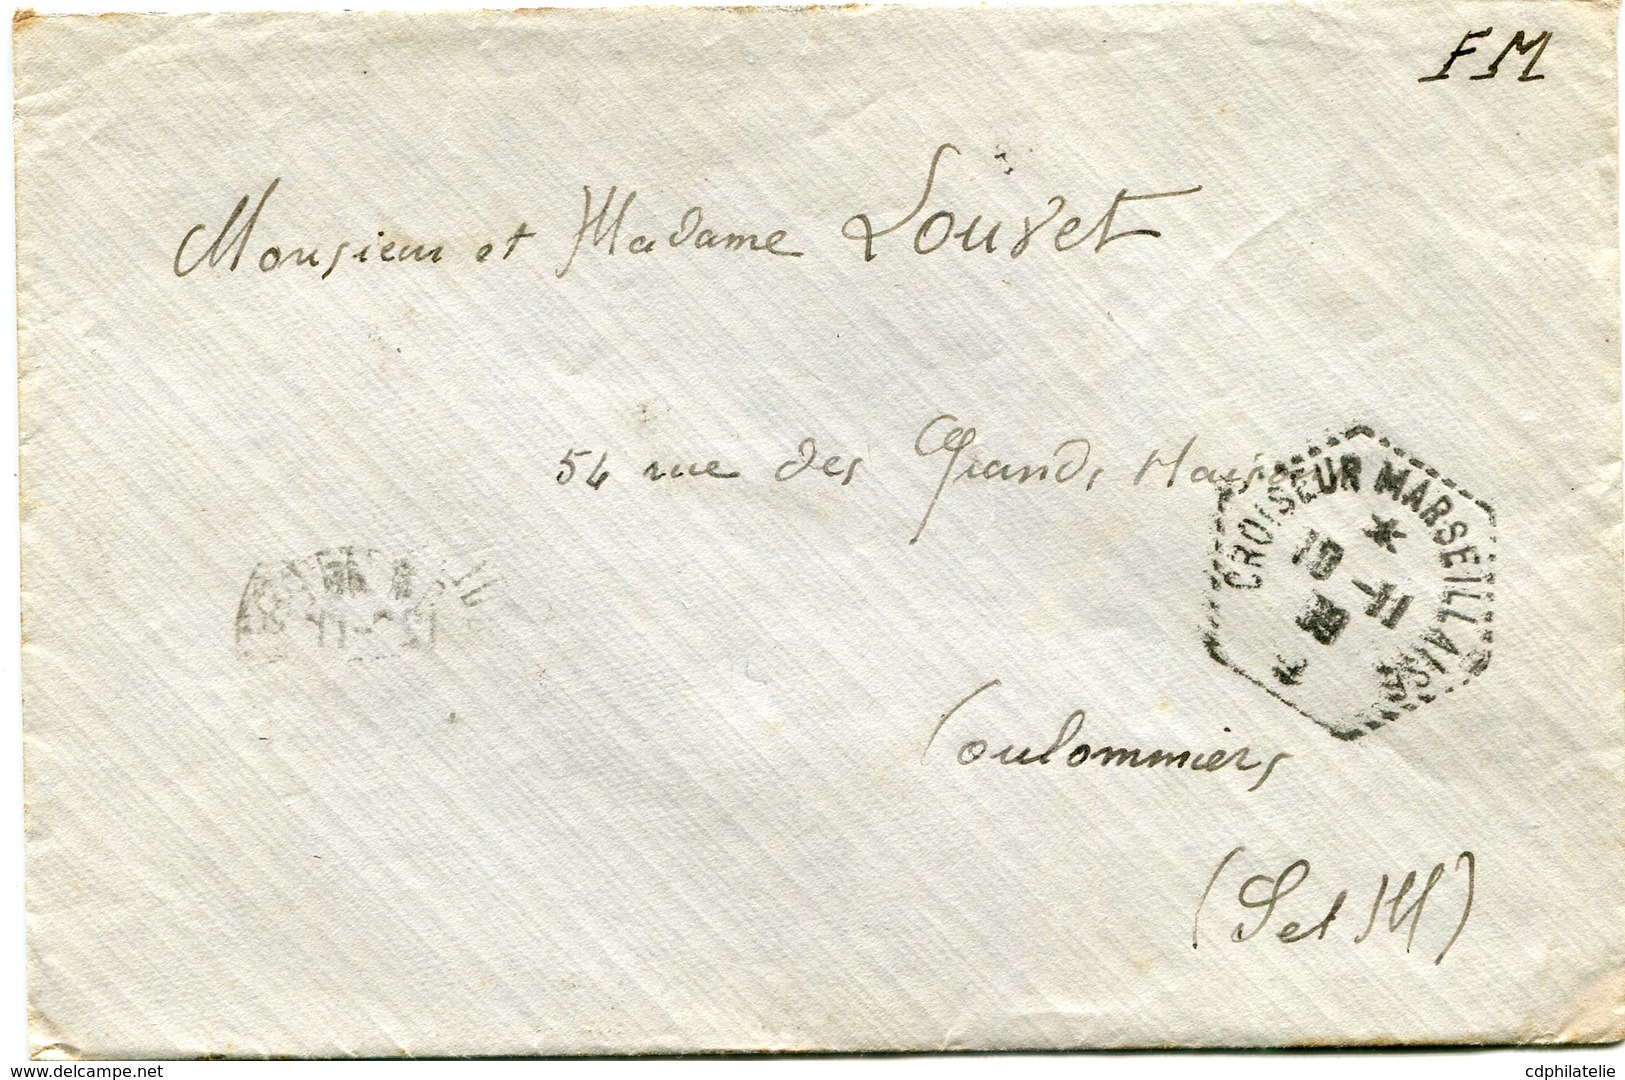 FM
Monsieur et Madame Louvet
54 rue des Grands Maisons
CROISEUR MARSEILLAISE
10 - 11
38
Coulommiers
(S et M)
www.delcampe.net
cdphilatelie